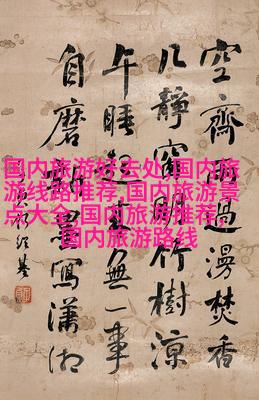 空齋過漫焚香
几靜窗明竹樹涼
午睡起來無一事
自磨墨寫瀟湘
国内旅游好去处,国内旅
游线路推荐_国内旅游景
点大全_国内旅游推荐_
国内旅游路线